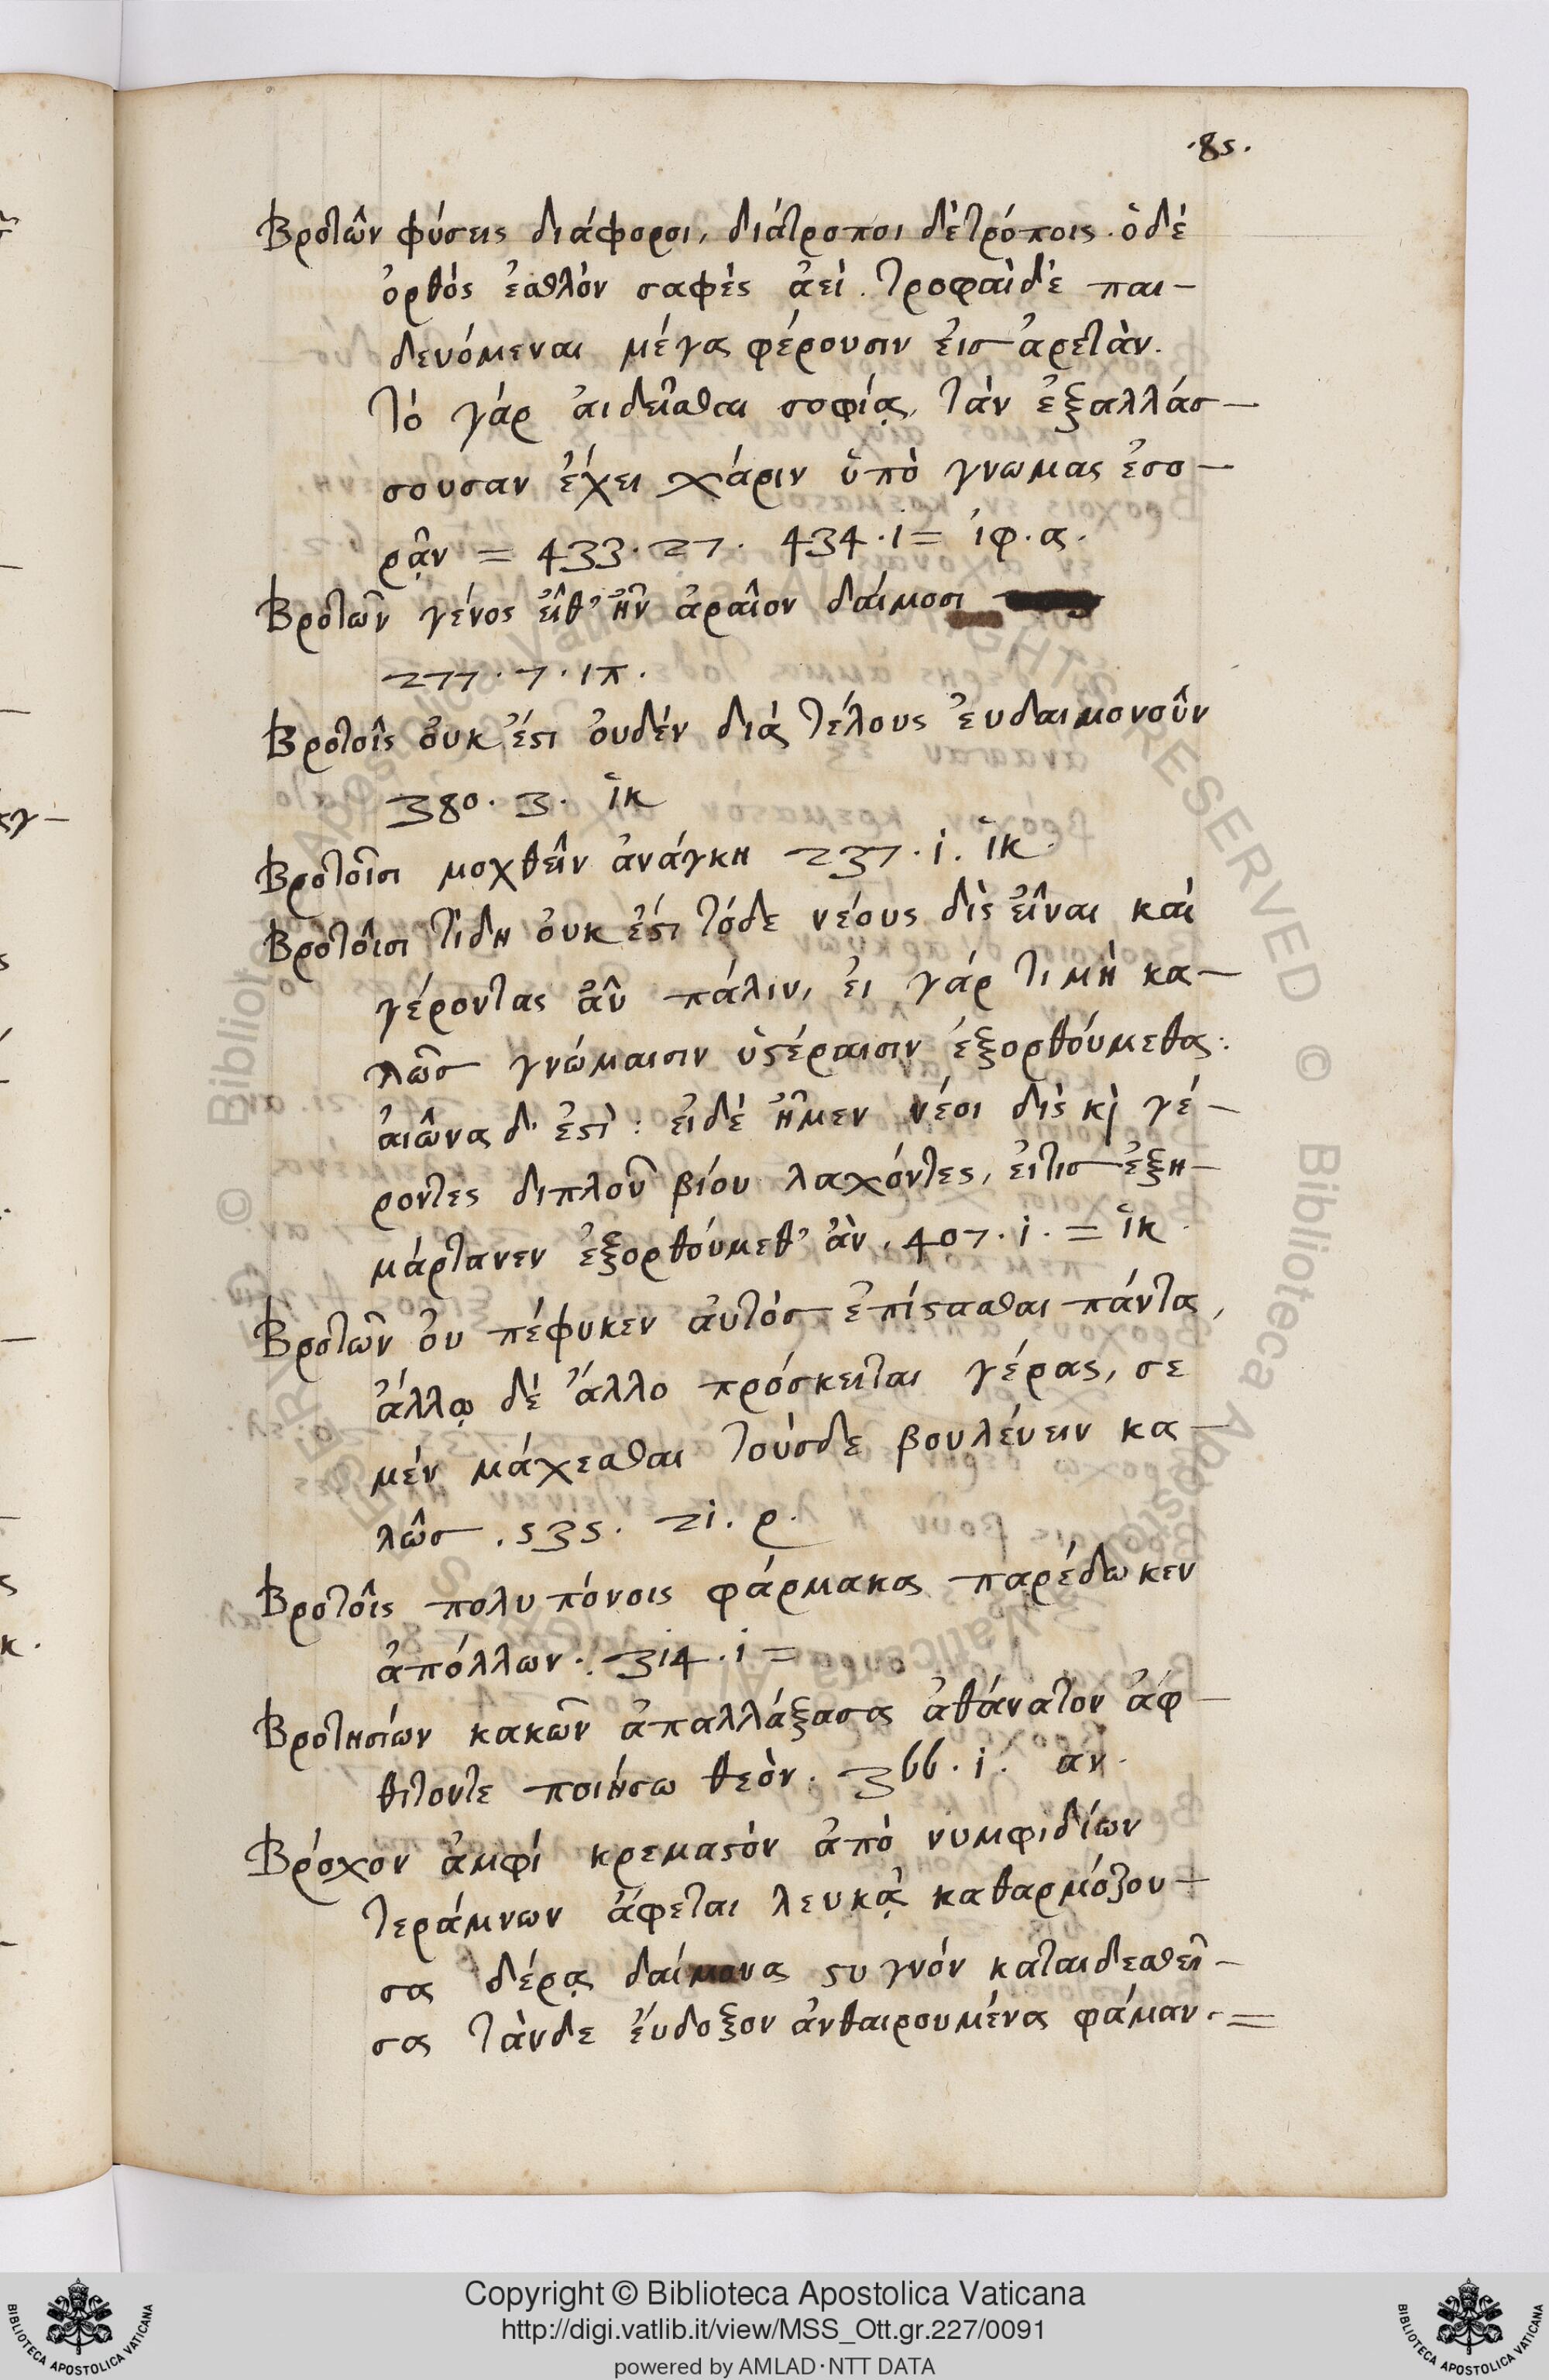 .85.
Βροτῶν φύσεις διάφοροι, διάτροποι δὲ τρόποις. ὁ δὲ
ὀρθός ἐσθλὸν σαφὲς ἀεὶ. τροφαὶ δ' ἑ παι-
δευόμεναι μέγα φέρουσιν εἰσ ἀρετὰν.
τό γάρ αἰδεῖσθαι σοφία, τὰν ἐξαλλάσ-
σουσαν ἔχει χάριν ὑπὸ γνωμας ἐσο-
ρᾷν = 433. 27. 434. i = ἰφ. α.
Βροτῶν γένος εἶθ' ἦν ἀραῖον δαίμοσι
277. 7. ιπ.
Βροτοῖς ὀυκ ἔςι ὀυδέν διὰ τέλους ἐυδαιμονοῦν
380. 3. ἱκ
Βροτοῖσι μοχθεῖν ἀνάγκη 237. i. ἱκ.
Βροτοῖσι τί δη ὀυκ ἔςι τόδε νέους δὶς εἶναι καὶ
γέροντας ἀῦ πάλιν, ἐι γάρ τι μὴ κα-
λῶσ γνώμαισιν ὑςέραισιν ἐξορθούμεθα:
ἀιῶνα δ' ἐςὶ: ἐι δὲ ἦμεν νέοι δὶς κὶ γέ-
ροντες διπλοῦ βίου λαχόντες, ἐίτισ ἐξη-
μάρτανεν ἐξορθούμεθ' ἀν. 407. i. = ἱκ.
Βροτῶν ὀυ πέφυκεν ἀυτόσ ἐπίςασθαι πάντα,
ἄλλῳ δέ ἄλλο πρόσκειται γέρας, σε
μέν μάχεσθαι τοὺσδε βουλέυειν κα-
λῶσ. 535. 21. ρ.
Βροτοῖς πολυπόνοις φάρμακα παρέδωκεν
ἀπόλλων. 314. i =
Βροτησίων κακῶν ἀπαλλάξασα ἀθάνατον ἄφ-
θιτοντε ποιήσω θεὸν. 366. i. αν.
Βρόχον ἀμφί κρεμαςὸν ἀπὸ νυμφιδίων
τεράμνων ἅφεται λευκᾷ καθαρμόζου-
σα δέρᾳ δαίμονα ςυγνόν καταιδεσθεῖ-
σα τὰνδε ἔυδοξον ἀνθαιρουμένα φάμαν. =
Copyright © Biblioteca Apostolica Vaticana
http://digi.vatlib.it/view/MSS_Ott.gr.227/0091
powered by AMLAD·NTT DATA
BIBLIOTECA APOSTOLICA VATICANA
BIBLIOTECA APOSTOLICA VATICANA